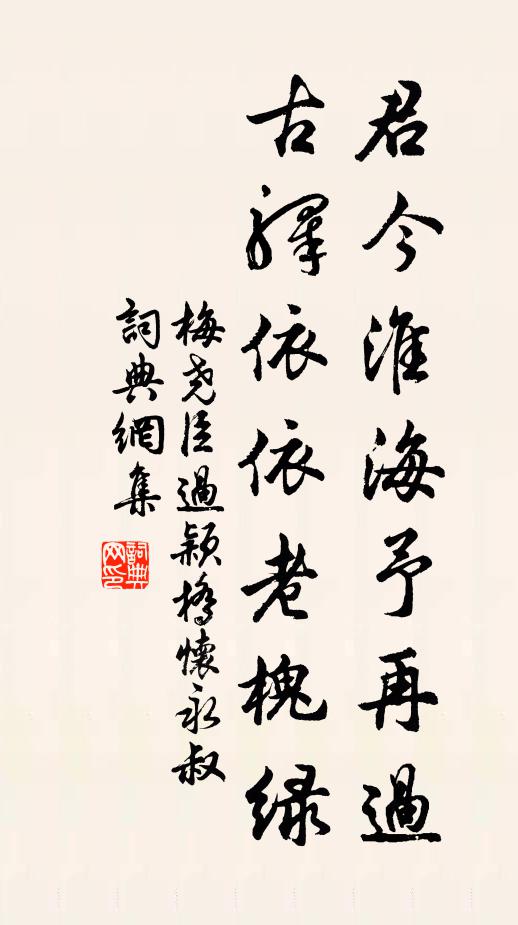 君今淮海予再過
古驛依依老槐綠
梅堯臣過潁橋懷永叔
詞典網集
詞典网印